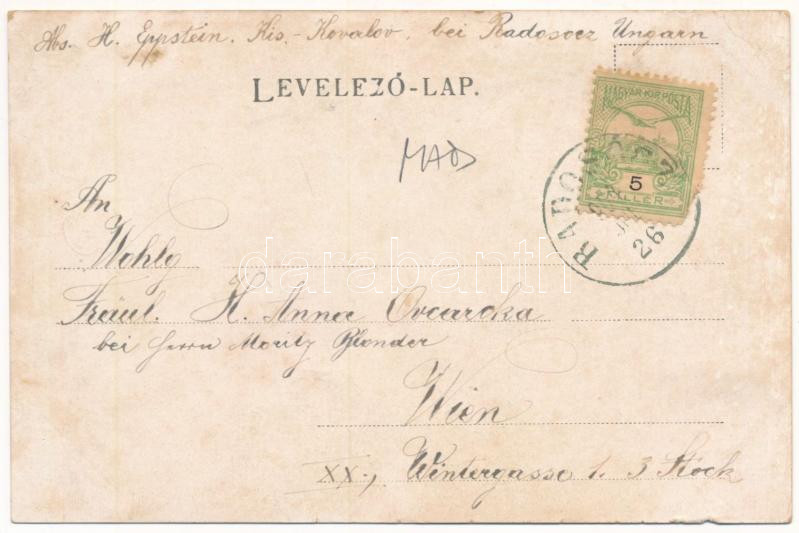 Abs. H. Eppstein. Kis-Kovalov, bei Radosocz Ungarn
LEVELEZŐ-LAP.
MAGYAR KIR. POSTA
5
FILLÉR
RADOSÓCZ
26
An
Wohlg
Fräul. H. Anna Ovcarcka
bei Herrn Moritz Blonder
Wien
XX., Wintergasse 1. 3 Stock
darabanth